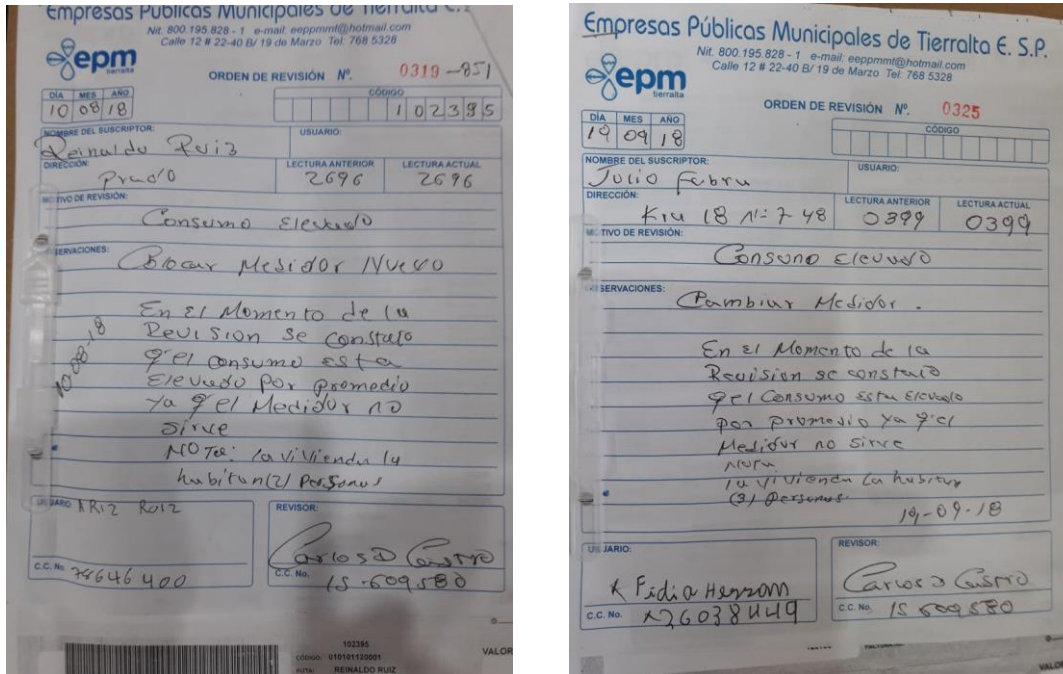 Empresas Públicas Municipales de Tierralta E.
Nit. 800.195.828 - 1 e-mail: eeppmmt@hotmail.com
Calle 12 # 22-40 B/ 19 de Marzo Tel: 768 5328
epm
tierralta
ORDEN DE REVISIÓN Nº. 0319-851
DÍA MES AÑO
10 08 18
CÓDIGO
102395
NOMBRE DEL SUSCRIPTOR:
Reinaldo Ruiz
USUARIO:
DIRECCIÓN:
Prado
LECTURA ANTERIOR
2696
LECTURA ACTUAL
2696
MOTIVO DE REVISIÓN:
Consumo Elevado
OBSERVACIONES:
Colocar Medidor Nuevo
En El Momento de la
Revision se constato
q' el consumo esta
Elevado por promedio
ya q' el Medidor no
sirve
NOTa: la vivienda la
habitan (2) Personas
10-08-18
USUARIO:
ARiz Roiz
C.C. No. 78646400
REVISOR:
Carlos D Castro
C.C. No. 15-609580
102395
CÓDIGO: 010101120001
RUTA: REINALDO RUIZ
VALOR
Empresas Públicas Municipales de Tierralta E. S.P.
Nit. 800.195.828 - 1 e-mail: eeppmmt@hotmail.com
Calle 12 # 22-40 B/ 19 de Marzo Tel: 768 5328
epm
tierralta
ORDEN DE REVISIÓN Nº. 0325
DÍA MES AÑO
19 09 18
CÓDIGO
NOMBRE DEL SUSCRIPTOR:
Julio Fabra
USUARIO:
DIRECCIÓN:
Kra 18 N: 7 48
LECTURA ANTERIOR
0399
LECTURA ACTUAL
0399
MOTIVO DE REVISIÓN:
Consumo Elevado
OBSERVACIONES:
Cambiar Medidor.
En El Momento de la
Revision se constato
q' el Consumo Esta Elevado
por promedio ya q' el
Medidor no sirve
Nota
la vivienda la habitan
(3) Personas.
19-09-18
USUARIO:
x Fidia
C.C. No. x26038449
REVISOR:
Carlos D Castro
C.C. No. 15 609580
VALOR